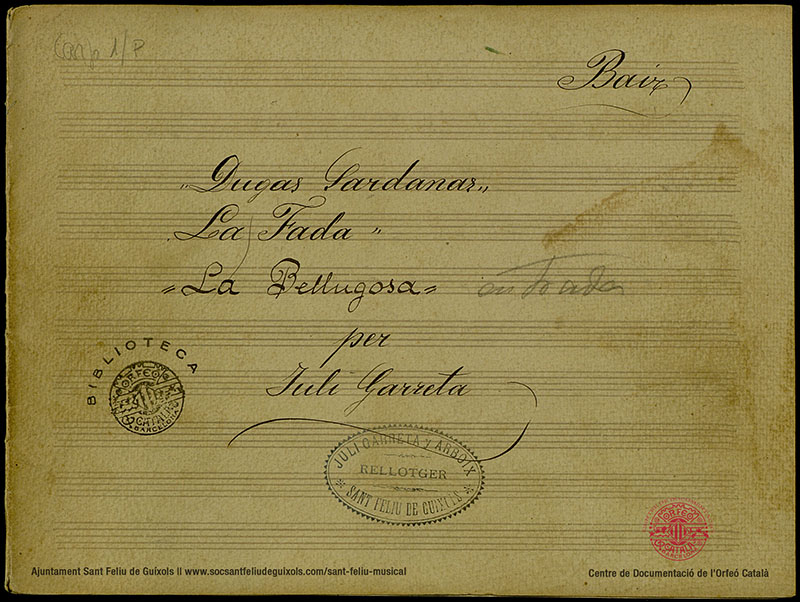 Baix
"Dugas Sardanas"
La Fada"
"La Bellugosa"
per
Juli Garreta
BIBLIOTECA
ORFEÓ CATALÀ
BARCELONA
JULI GARRETA Y ARBOIX
RELLOTGER
SANT FELIU DE GUIXOLS
ORFEÓ CATALÀ
Ajuntament Sant Feliu de Guíxols II www.socsantfeliudeguixols.com/sant-feliu-musical
Centre de Documentació de l'Orfeó Català